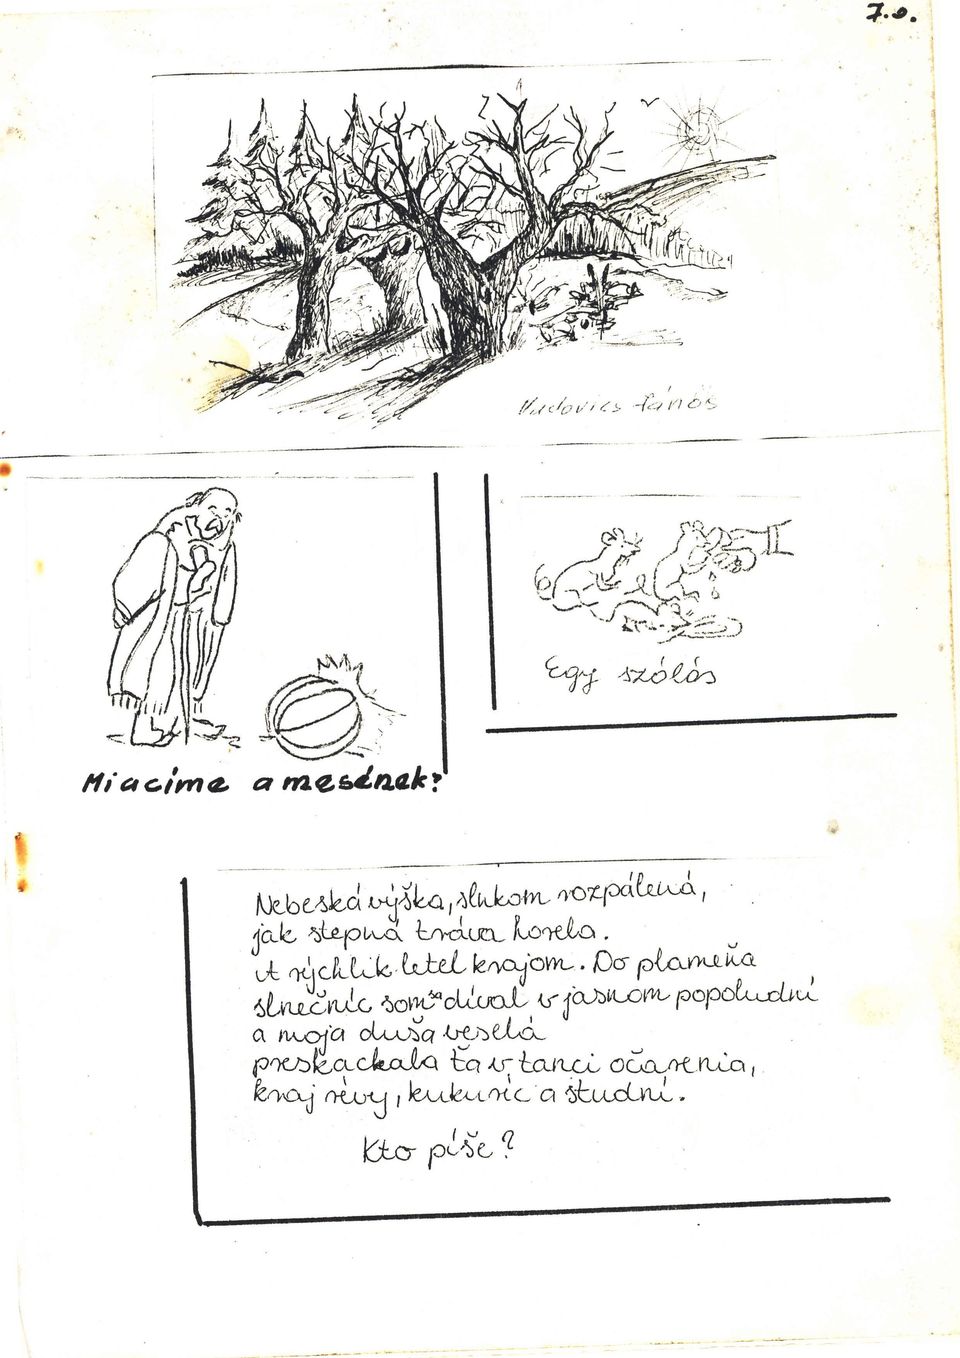 7.o.
Vudovics János
Egy szólás
Mi a címe a mesének?
Nebeská výška, slnkom rozpálená,
jak stepná tráva horela.
A rýchlik letel krajom. Do plameňa
slnečníc som sa díval v jasnom popoludní
a moja duša veselá
preskackala ťa v tanci očarenia,
kraj révy, kukuríc a študní.
Kto píše?